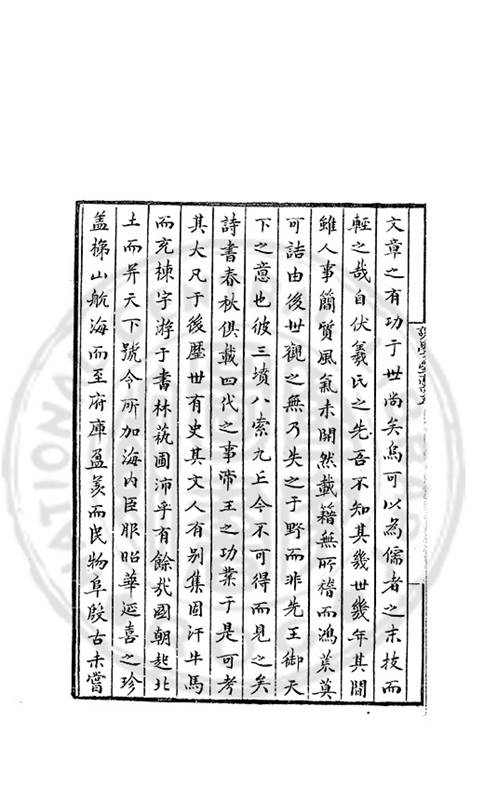 文章之有功于世尚矣烏可以為儒者之末技而
輕之哉自伏羲氏之先吾不知其幾世幾年其間
雖人事簡質風氣未開然載籍無所稽而鴻荒莫
可詰由後世觀之無乃失之于野而非先王御天
下之意也彼三墳八索九丘今不可得而見之矣
詩書春秋俱載四代之事帝王之功業于是可考
其大凡于後歷世有史其文人有别集固汗牛馬
而充棟宇游于書林蓺圃沛乎有餘哉國朝起北
土而并天下號令所加海内臣服昭華延喜之珍
盖梯山航海而至府庫盈羨而民物阜殷古未嘗